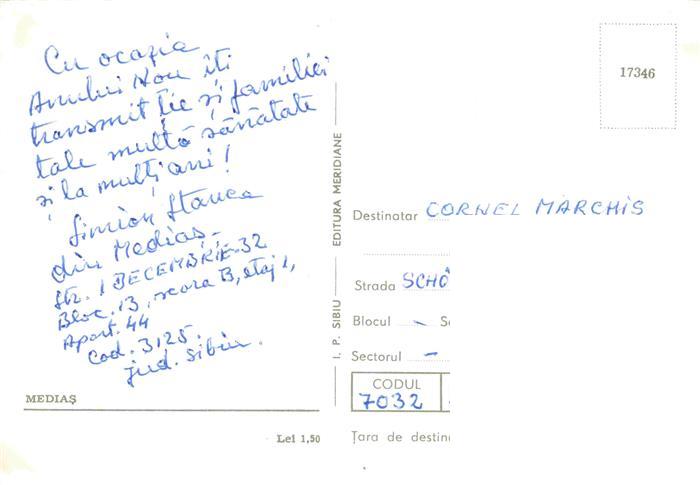 Cu ocazia
Anului Nou îti
transmit ție și familiei
tale multă sănătate
și la mulți ani!
Simion Stanca
din Medias-
Str. 1 DECEMBRIE-32
Bloc. 13, scara B, etaj 1,
Apart. 44
Cod. 3125.
jud. Sibiu.
MEDIAȘ
Lei 1,50
I. P. SIBIU — EDITURA MERIDIANE
17346
Destinatar CORNEL MARCHIS
Strada SCHÖ
Blocul - S
Sectorul -
CODUL
7032
Țara de destin